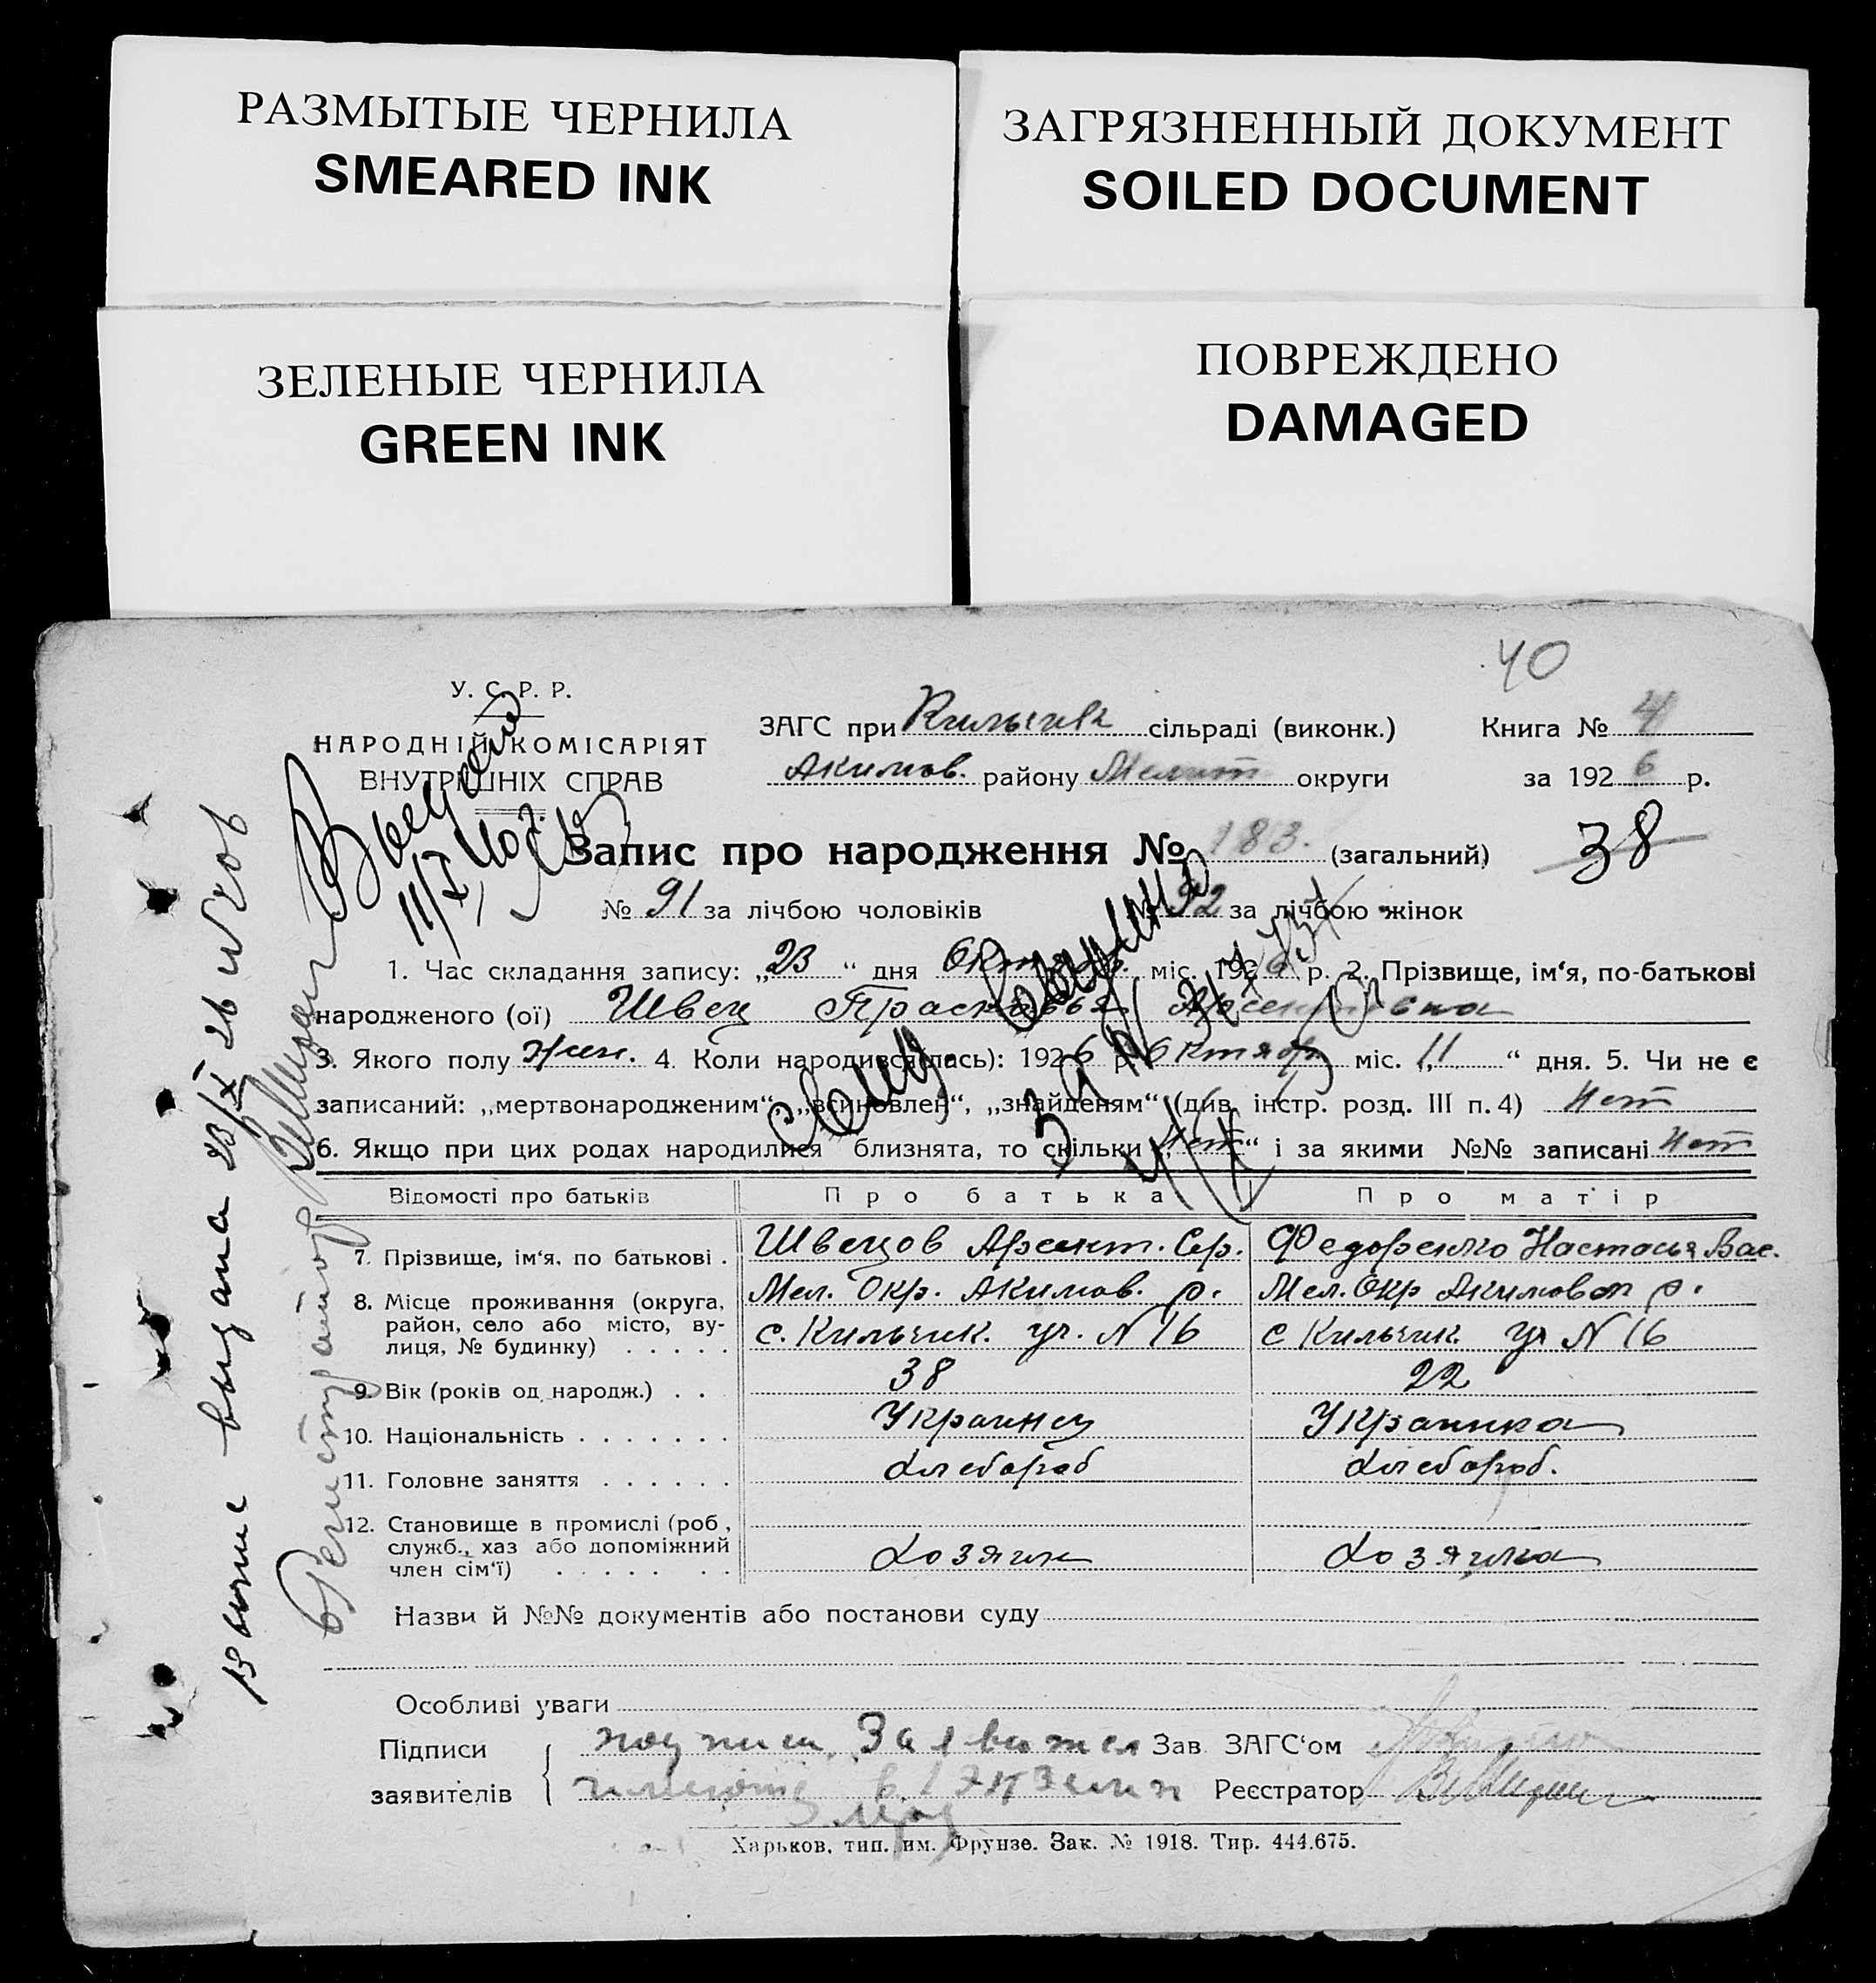 РАЗМЫТЫЕ ЧЕРНИЛА
SMEARED INK
ЗАГРЯЗНЕННЫЙ ДОКУМЕНТ
SOILED DOCUMENT
ЗЕЛЕНЫЕ ЧЕРНИЛА
GREEN INK
ПОВРЕЖДЕНО
DAMAGED
40
У. С. Р. Р.
НАРОДНІЙ КОМІСАРІЯТ
ВНУТРІШНІХ СПРАВ
ЗАГС при Кильчик сільраді (виконк.) Книга № 4
Акимов. району Мелит округи за 1926 р.
Запис про народження № 183. (загальний)
38
№ 91 за лічбою чоловіків № 92 за лічбою жінок
1. Час складання запису: „23“ дня Октяб. міс. 1926 р. 2. Прізвище, ім'я, по-батькові
народженого (ої) Швец Прасковья Арсентовна
3. Якого полу жен. 4. Коли народився(лась): 1926 р. Октябр міс. 11 “ дня. 5. Чи не є
записаний: „мертвонародженим“, „всиновлен“, „знайденям“ (див. інстр. розд. III п. 4) Нет
6. Якщо при цих родах народилися близнята, то скільки „Нет“ і за якими №№ записані Нет
Відомості про батьків Про батька Про матір
7. Прізвище, ім'я, по батькові . Швецов Арсент. Сер. Федоренко Настасья Вас.
8. Місце проживання (округа, район, село або місто, вулиця, № будинку) . . . . .
Мел. Окр. Акимов. р. Мел. Окр Акимовск р.
с. Кильчик. ул. N 16 с Кильчик. ул N 16
9. Вік (років од народж.) . . 38 22
10. Національність . . . . . . . Украинец Украинка
11. Головне заняття . . . . . . Хлебороб Хлебороб.
12. Становище в промислі (роб., служб., хаз або допоміжний член сім'ї) . . . . . . .
Хозяин Хозяйка
Назви й №№ документів або постанови суду
Особливі уваги
Підписи заявителів
подписи Заявител
имеютс в 1 экземп
Зав. ЗАГС'ом
Реєстратор
Харьков, тип. им. Фрунзе. Зак. № 1918. Тир. 444.675.
выдана 23/X 26
Регистратор